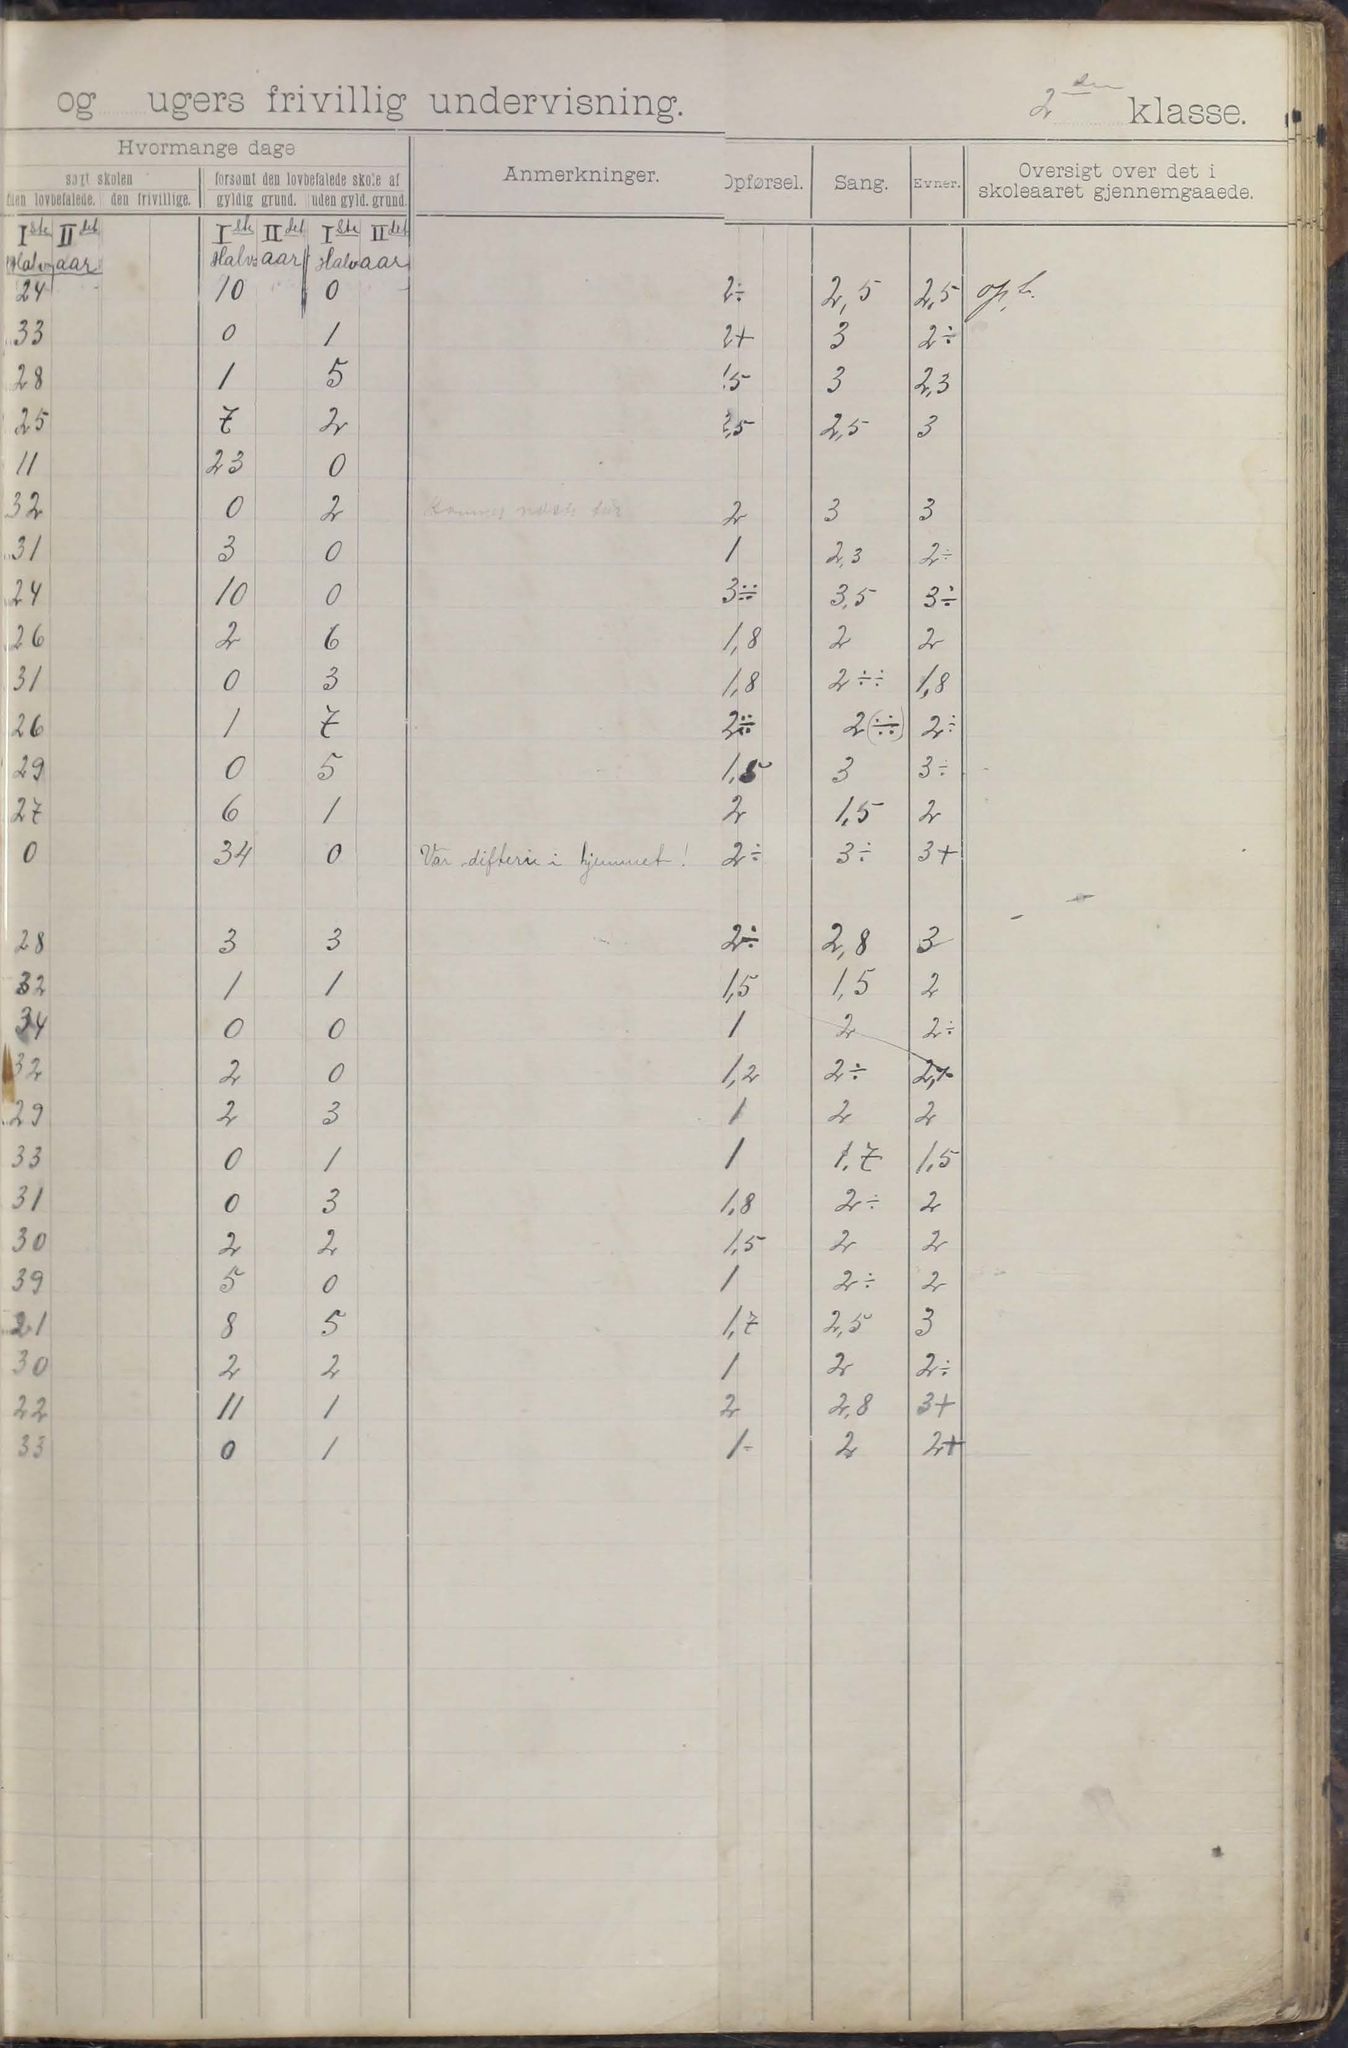 og ugers frivillig undervisning. 2den klasse.
Hvormange dage
søgt skolen forsømt den lovbefalede skole af Anmerkninger. Opførsel. Sang. Evner. Oversigt over det i
skoleaaret gjennemgaaede.
den lovbefalede. den frivillige. gyldig grund. uden gyld. grund.
Iste IIdet Iste IIdet Iste IIdet
Halvaar Halvaar Halvaar
24 10 0 2÷ 2,5 2,5
33 0 1 2+ 3 2÷
28 1 5 ,5 3 2,3
25 7 2 ,5 2,5 3
11 23 0
32 0 2 2 3 3
31 3 0 1 2,3 2÷
24 10 0 3÷÷ 3,5 3÷
26 2 6 1,8 2 2
31 0 3 1,8 2÷÷ 1,8
26 1 7 2÷÷ 2(÷÷) 2÷
29 0 5 1,5 3 3÷
27 6 1 2 1,5 2
0 34 0 Var difteri i hjemmet! 2÷ 3÷ 3+
28 3 3 2÷ 2,8 3
32 1 1 1,5 1,5 2
34 0 0 1 2 2÷
32 2 0 1,2 2÷
29 2 3 1 2 2
33 0 1 1 1,7 1,5
31 0 3 1,8 2÷ 2
30 2 2 1,5 2 2
39 5 0 1 2÷ 2
21 8 5 1,7 2,5 3
30 2 2 1 2 2÷
22 11 1 2 2,8 3+
33 0 1 1- 2 2+